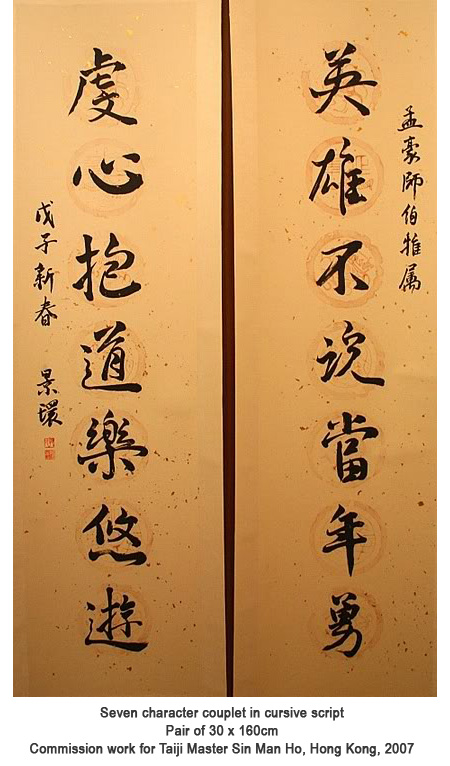 英雄不說當年勇
孟豪師伯雅属
虔心抱道樂悠遊
戊子新春 景環
Seven character couplet in cursive script
Pair of 30 x 160cm
Commission work for Taiji Master Sin Man Ho, Hong Kong, 2007